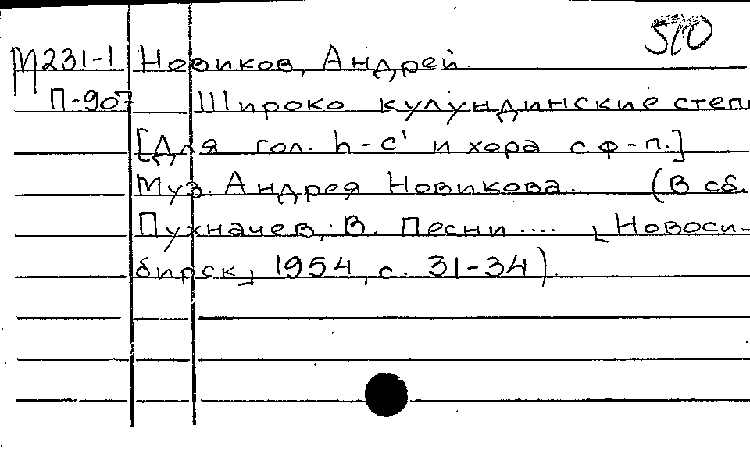 510
М231-1 Новиков, Андрей.
П-907 Широко кулундинские степи
[Для гол. h-c' и хора с ф-п.]
Муз. Андрея Новикова. (В сб.
Пухначев, В. Песни .... [Новоси-
бирск], 1954, с. 31-34).